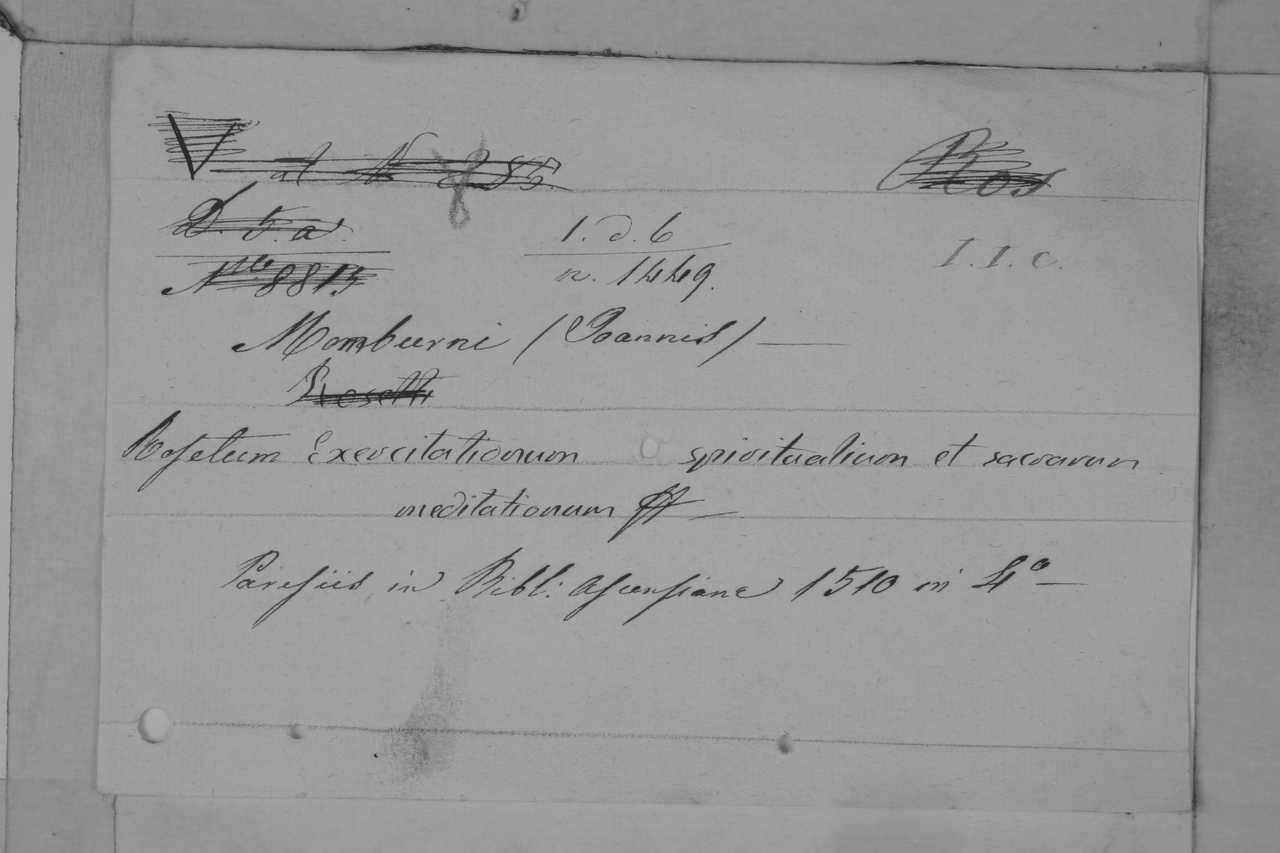 V at N 885. Ros
D. 5. a.
1. d. 6 I. I. c.
N 8815 n. 1449.
Momburni (Joannis) —
Rosetti
Rosetum Exercitationum spiritualium et sacrarum
meditationum
Parisiis in Bibl: Ascensiane 1510 in 4º —